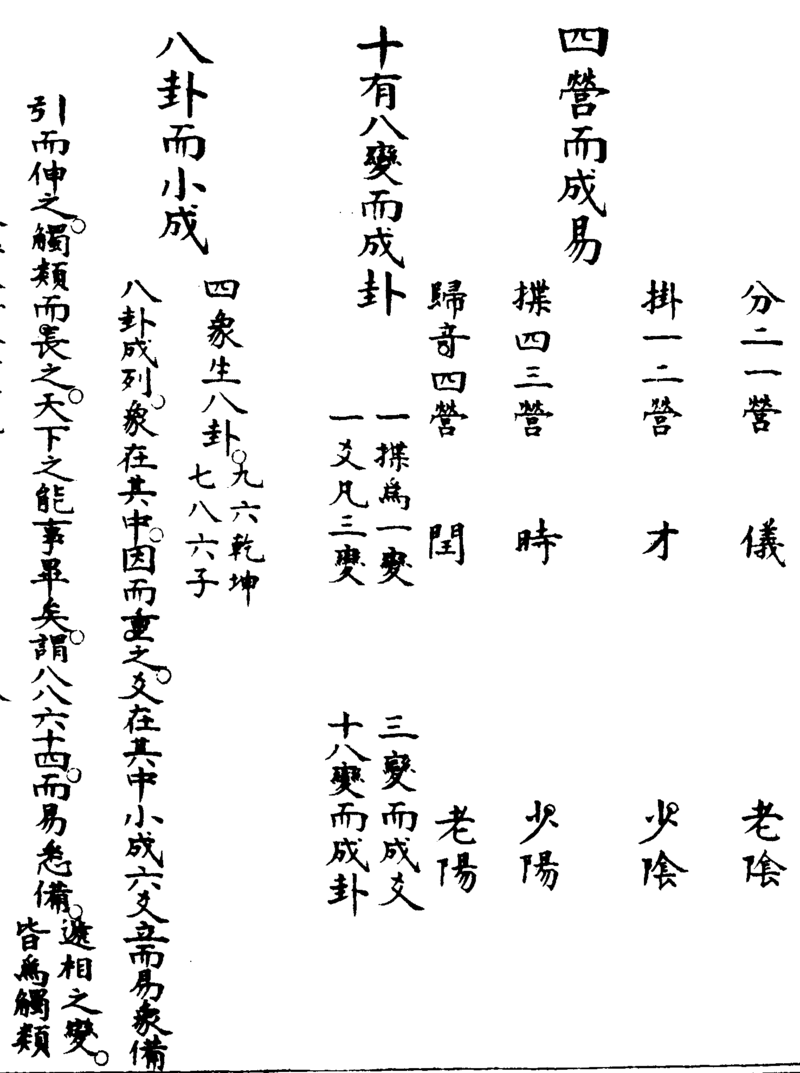 四營而成易
分二一營　儀　老陰
掛一二營　才　少陰
揲四三營　時　少陽
歸奇四營　閏　老陽
十有八變而成卦
一揲爲一變　三變而成爻
一爻凡三變　十八變而成卦
八卦而小成
四象生八卦。
九六乾坤
七八六子
八卦成列。象在其中。因而重之。爻在其中小成六爻立而易象備
引而伸之。觸類而長之。天下之能事畢矣。謂八八六十四。而易悉備。
遞相之變。
皆爲觸類